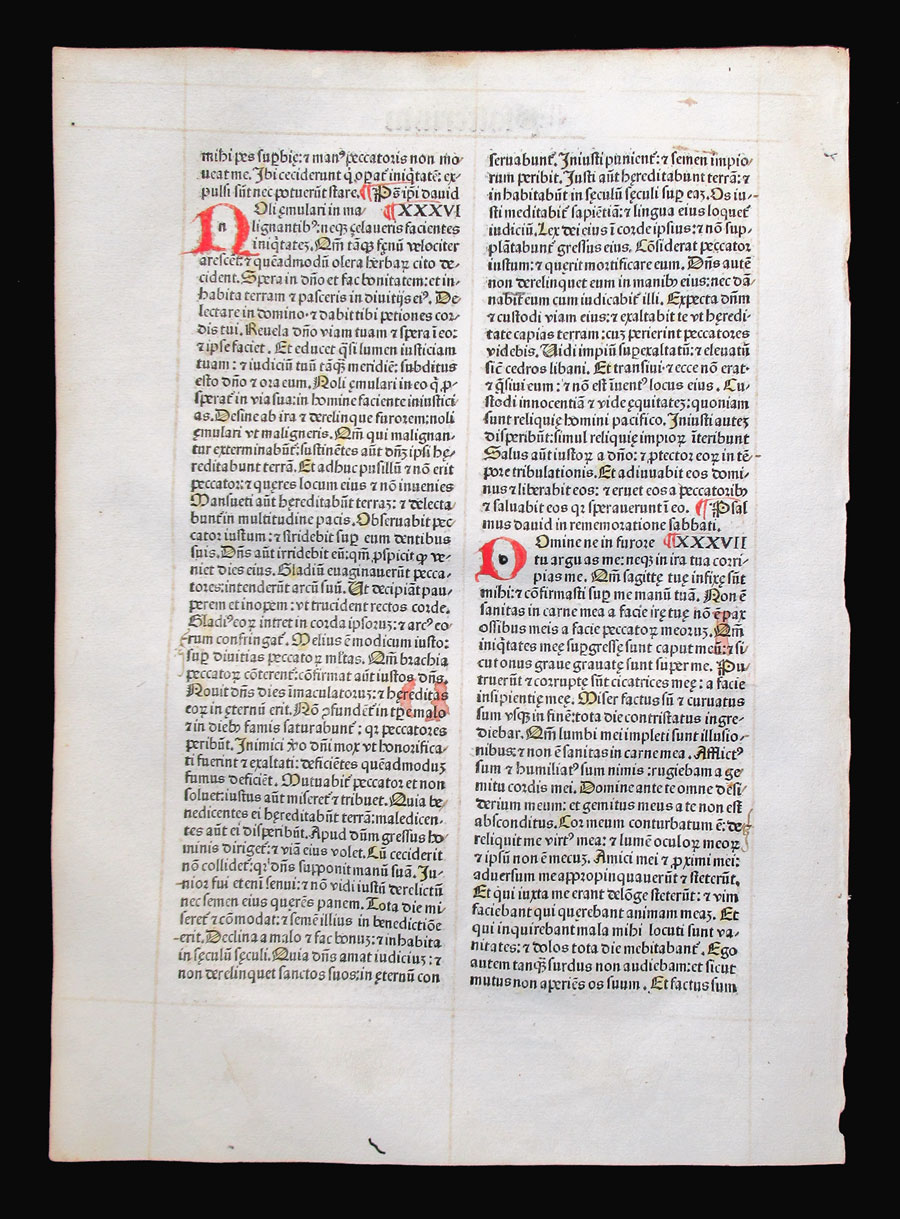 mihi pes suꝑbię: ⁊ manꝰ peccatoris non mo-
ueat me. Ibi ceciderunt q̇ oꝑat̃ iniq̃tatē: ex-
pulsi sūt nec potuerūt stare. ¶ Pš ip̄i dauid
Noli ęmulari in ma- ¶ XXXVI
lignantibꝰ: neqꝫ ęelaueris facientes
iniq̃tateꝫ. Qm̄ tāqꝫ fęnū velociter
arescēt: ⁊ quēadmodū olera herbaꝝ cito de-
cident. Spera in dn̄o et fac bonitatem: et in-
habita terram ⁊ pasceris in diuitijs eiꝰ. De-
lectare in domino: ⁊ dabit tibi petiones cor-
dis tui. Reuela dn̄o viam tuam ⁊ spera ī eo:
⁊ ipse faciet. Et educet q̄si lumen iusticiam
tuam: ⁊ iudiciū tuū tāqꝫ meridiē: subditus
esto dn̄o ⁊ ora eum. Noli ęmulari in eo q̇ ꝓ-
sperat̃ in via sua: in homine faciente iniustici
as. Desine ab ira ⁊ derelinque furorem: noli
ęmulari vt maligneris. Qm̄ qui malignan-
tur exterminabūt̃: sustinētes aūt dn̄ꝫ ipsi hę-
reditabunt terrā. Et adhuc pusillū ⁊ nō erit
peccator: ⁊ quęres locum eius ⁊ nō inuenies
Mansueti aūt hęreditabūt terraꝫ: ⁊ delecta
bunt̃ in multitudine pacis. Obseruabit pec
cator iustum: ⁊ stridebit suꝑ eum dentibus
suis. Dn̄s aūt irridebit eū: qm̄ ꝓspicit ꝙ ve-
niet dies eius. Gladiū euaginauerūt pecca-
tores: intenderūt arcū suū. Ut decipiāt pau-
perem et inopem: vt trucident rectos corde.
Gladiꝰ eoꝝ intret in corda ipsoruꝫ: ⁊ arcꝰ eo-
rum confringat̃. Melius ē modicum iusto:
suꝑ diuitias peccatoꝝ ml̃tas. Qm̄ brachia
peccatoꝝ cōterēt̃: cōfirmat aūt iustos dn̄s.
Nouit dn̄s dies īmaculatoruꝫ: ⁊ hęreditas
eoꝝ in ęternū erit. Nō ꝯfundēt̃ in tꝑe malo
⁊ in diebꝰ famis saturabunt̃: qꝛ peccatores
peribūt. Inimici ꝟo dn̄i mox vt honorifica-
ti fuerint ⁊ exaltati: deficiētes quēadmoduꝫ
fumus deficiēt. Mutuabit̃ peccator et non
soluet: iustus aūt miseret̃ ⁊ tribuet. Quia be-
nedicentes ei hęreditabūt terrā: maledicen-
tes aūt ei disperibūt. Apud dn̄um gressus ho-
minis diriget̃: ⁊ viā eius volet. Cū ceciderit
nō collidet̃: qꝛ dn̄s supponit manū suā. Iu-
nior fui etenī senui: ⁊ nō vidi iustū derelictū
nec semen eius querēs panem. Tota die mi-
seret̃ ⁊ cōmodat: ⁊ semē illius in benedictiōe
erit. Declina a malo ⁊ fac bonuꝫ: ⁊ inhabita
in sęculū sęculi. Quia dn̄s amat iudiciuꝫ: ⁊
non derelinquet sanctos suos: in ęternū con
seruabunt̃. Iniusti punient̃: ⁊ semen impio-
rum peribit. Iusti aūt hęreditabunt terrā: ⁊
in habitabūt in sęculū sęculi suꝑ eaꝫ. Os iu-
sti meditabit̃ sapiētiā: ⁊ lingua eius loquet̃
iudiciū. Lex dei eius ī corde ipsius: ⁊ nō sup-
plātabunt̃ gressus eius. Cōsiderat peccator
iustum: ⁊ querit mortificare eum. Dn̄s autē
non derelinquet eum in manibꝰ eius: nec dā-
nabit̃ eum cum iudicabit̃ illi. Expecta dn̄m
⁊ custodi viam eius: ⁊ exaltabit te vt hęredi-
tate capias terram: cuꝫ perierint peccatores
videbis. Uidi impiū suꝑexaltatū: ⁊ eleuatū
sic̄ cedros libani. Et transiui: ⁊ ecce nō erat:
⁊ q̄siui eum: ⁊ nō est īuentꝰ locus eius. Cu-
stodi innocentiā ⁊ vide ęquitateꝫ: quoniam
sunt reliquię homini pacifico. Iniusti auteꝫ
disperibūt: simul reliquię impioꝝ īteribunt
Salus aūt iustoꝝ a dn̄o: ⁊ ꝓtector eoꝝ in tē-
pore tribulationis. Et adiuuabit eos domi-
nus ⁊ liberabit eos: ⁊ eruet eos a peccatoribꝰ
⁊ saluabit eos qꝛ sperauerunt ī eo. ¶ Psal
mus dauid in rememoratione sabbati.
Domine ne in furore ¶ XXXVII
tuo arguas me: neqꝫ in ira tua corri-
pias me. Qm̄ sagittę tuę infixę sūt
mihi: ⁊ cōfirmasti suꝑ me manū tuā. Non ē
sanitas in carne mea a facie irę tuę nō ē pax
ossibus meis a facie peccatoꝝ meoruꝫ. Qm̄
iniq̃tates meę suꝑgressę sunt caput meū: ⁊ si
cut onus graue grauatę sunt super me. Pu-
truerūt ⁊ corruptę sūt cicatrices meę: a facie
insipientię meę. Miser factus sū ⁊ curuatus
sum vsqꝫ in finē: tota die contristatus ingre-
diebar. Qm̄ lumbi mei impleti sunt illusio-
nibus: ⁊ non ē sanitas in carne mea. Afflictꝰ
sum ⁊ humiliatꝰ sum nimis: rugiebam a ge-
mitu cordis mei. Domine ante te omne desi-
derium meum: et gemitus meus a te non est
absconditus. Cor meum conturbatum ē: de-
reliquit me virtꝰ mea: ⁊ lumē oculoꝝ meoꝝ
⁊ ipsū non ē mecuꝫ. Amici mei ⁊ ꝓximi mei:
aduersum me appropinquauerūt ⁊ steterūt.
Et qui iuxta me erant de lōge steterūt: ⁊ vim
faciebant qui querebant animam meaꝫ. Et
qui inquirebant mala mihi locuti sunt va-
nitates: ⁊ dolos tota die mebitabant̃. Ego
autem tanqꝫ surdus non audiebam: et sicut
mutus non aperiēs os suum. Et factus sum